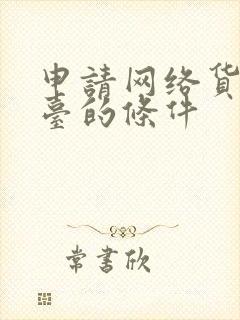 申請网络貨
臺的條件
常書欣